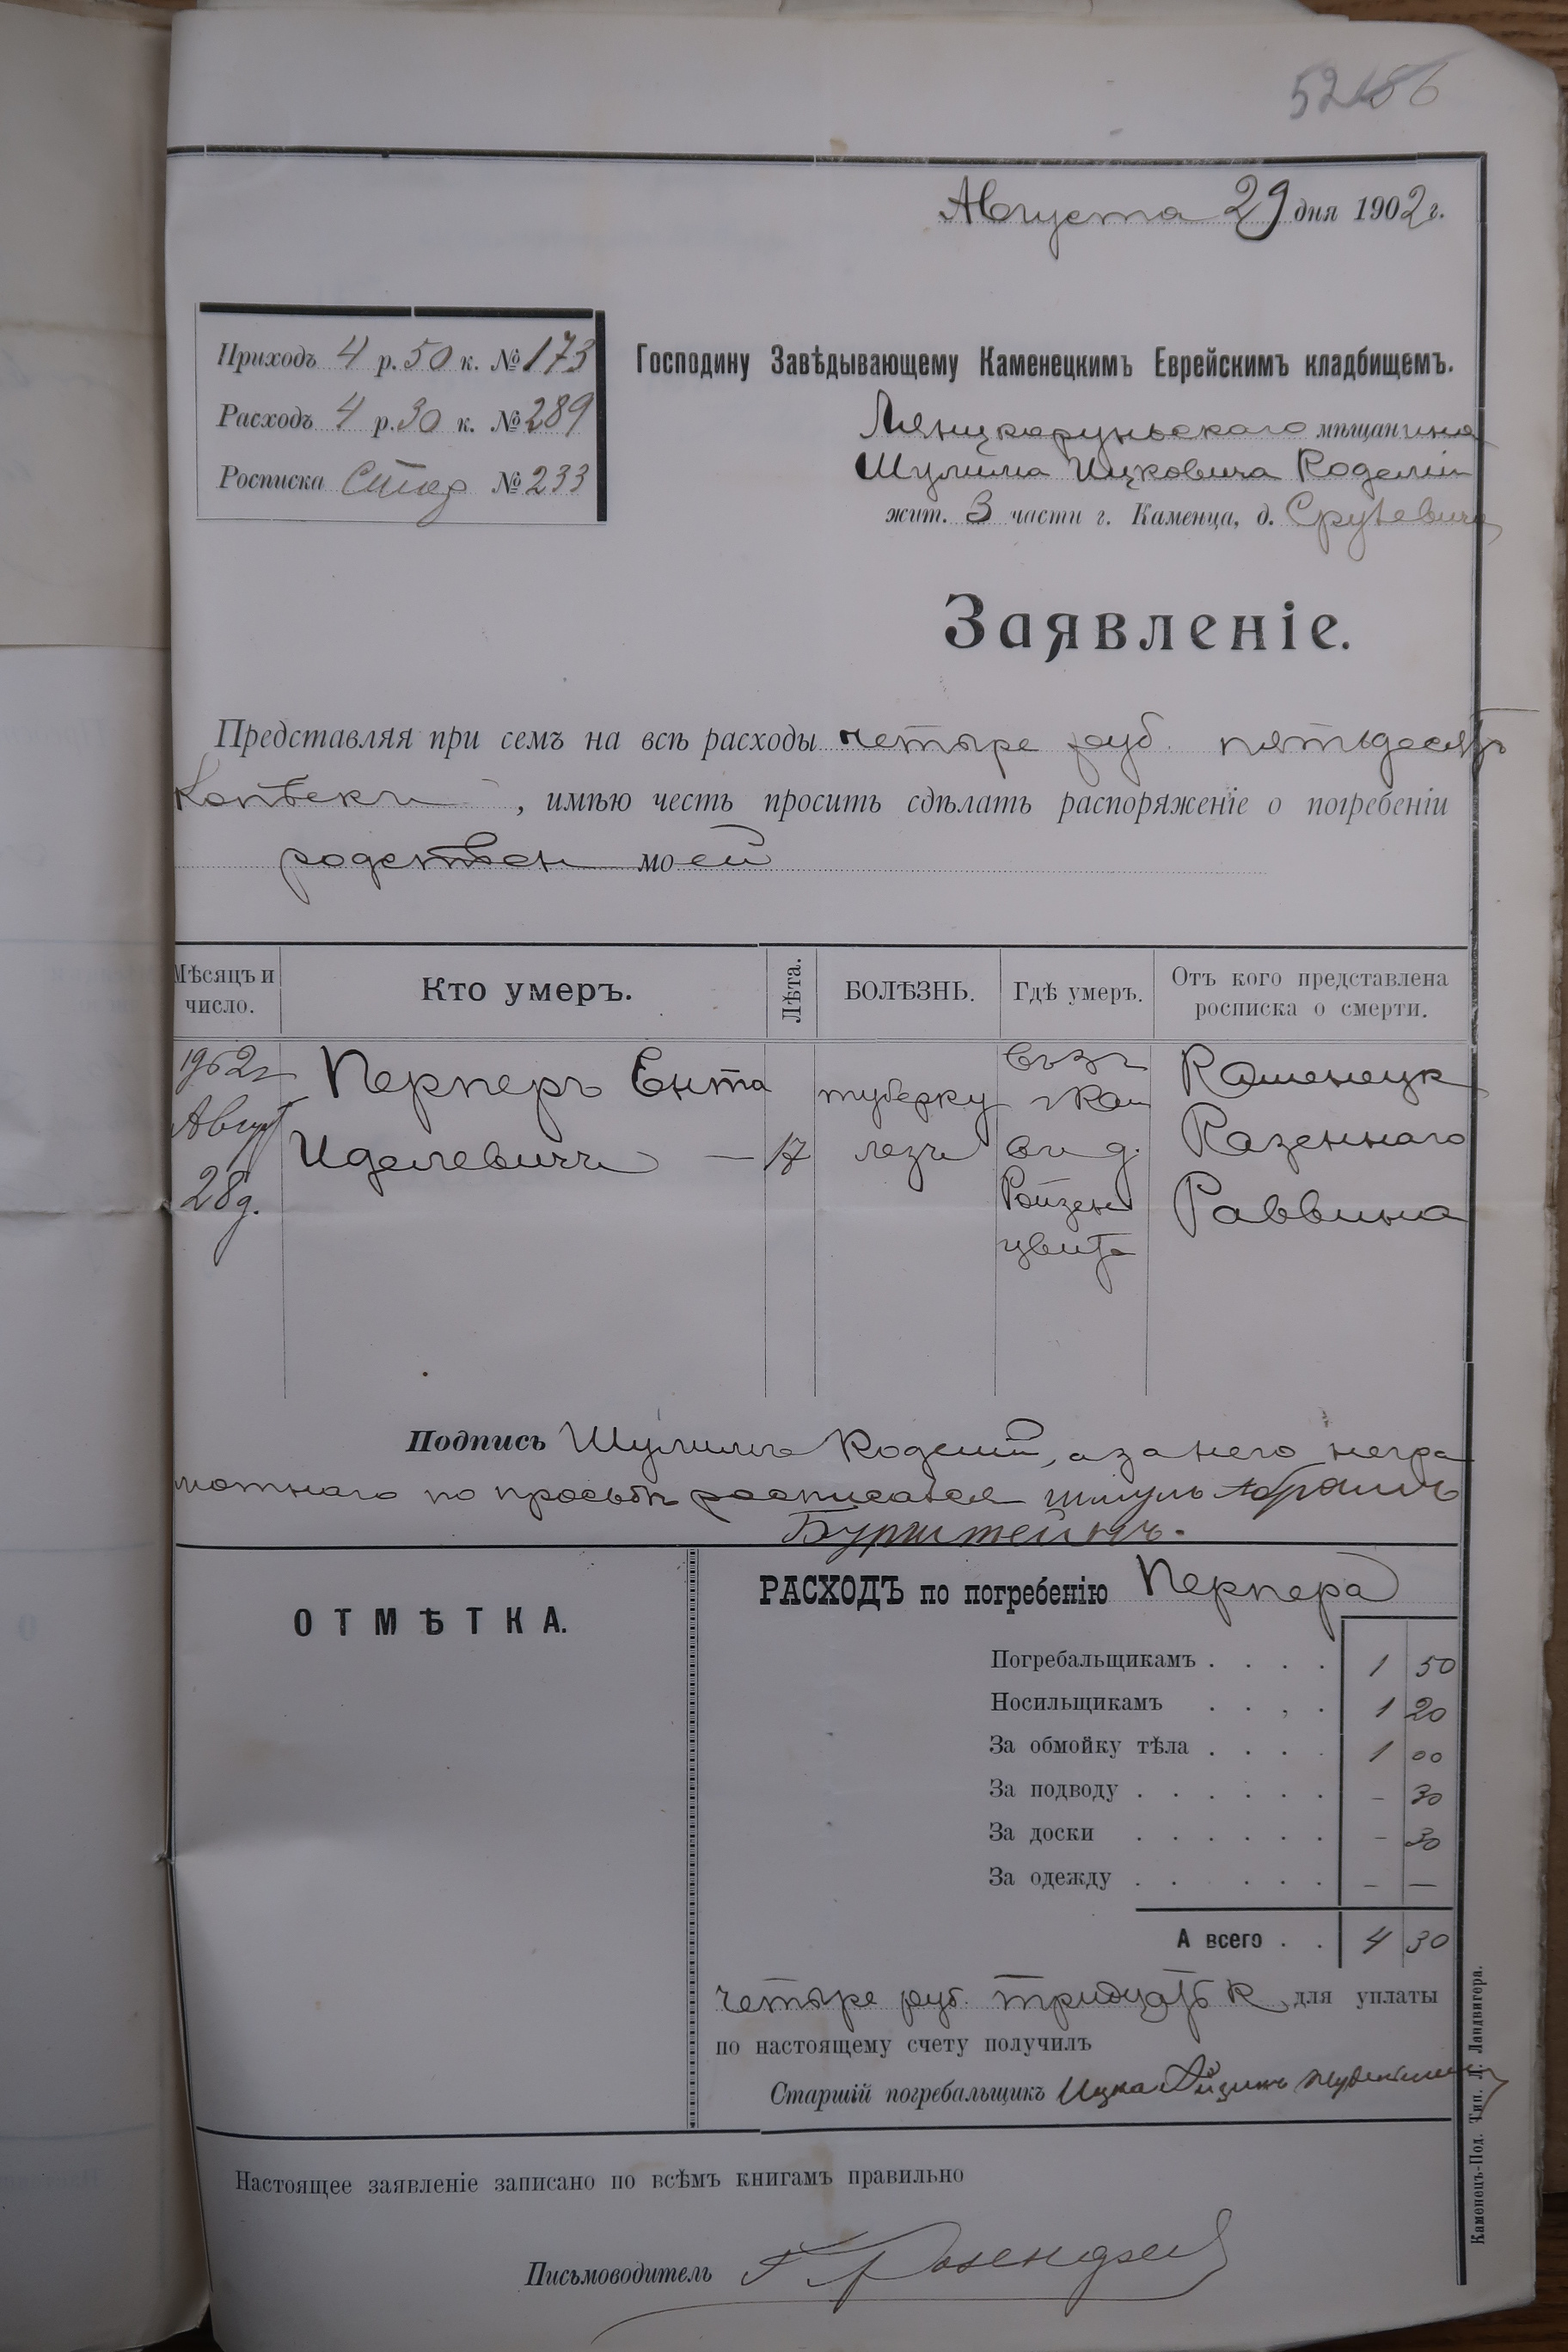 52 186
Августа 29 дня 1902 г.
Приходъ 4 р. 50 к. № 173
Расходъ 4 р. 30 к. № 289
Росписка № 233
Господину Завѣдывающему Каменецкимъ Еврейскимъ кладбищемъ.
Лянцкоруньскаго мѣщанина
Шулима Ицковича
жит. 3 части г. Каменца, д.
Заявленіе.
Представляя при семъ на всѣ расходы четыре руб. пятьдесятъ
копѣекъ, имѣю честь просить сдѣлать распоряженіе о погребеніи
родствен моей
Мѣсяцъ и число.
Кто умеръ.
Лѣта.
БОЛѢЗНЬ.
Гдѣ умеръ.
Отъ кого представлена росписка о смерти.
1902 г
Авг
28 д.
Перперъ Ента
Иделевичъ — 17
туберку
лезъ
въ 3 ч
г Кам
въ д.
Ройзен
цвита
Каменецк
Казеннаго
Раввина
Подпись Шулимъ, а за него негра
мотнаго по просьбѣ росписался Шмуль Абрамъ
Бурштейнъ.
ОТМѢТКА.
РАСХОДЪ по погребенію Перпера
Погребальщикамъ . . . . 1 50
Носильщикамъ . . , . 1 20
За обмойку тѣла . . . . 1 00
За подводу . . . . . . – 30
За доски . . . . . . – 30
За одежду . . . . . . – —
А всего . . 4 30
четыре руб. тридцать к, для уплаты
по настоящему счету получилъ
Старшій погребальщикъ Ицка Айзикъ
Настоящее заявленіе записано по всѣмъ книгамъ правильно
Письмоводитель
Каменецъ-Под. Тип. Л. Ландвигера.